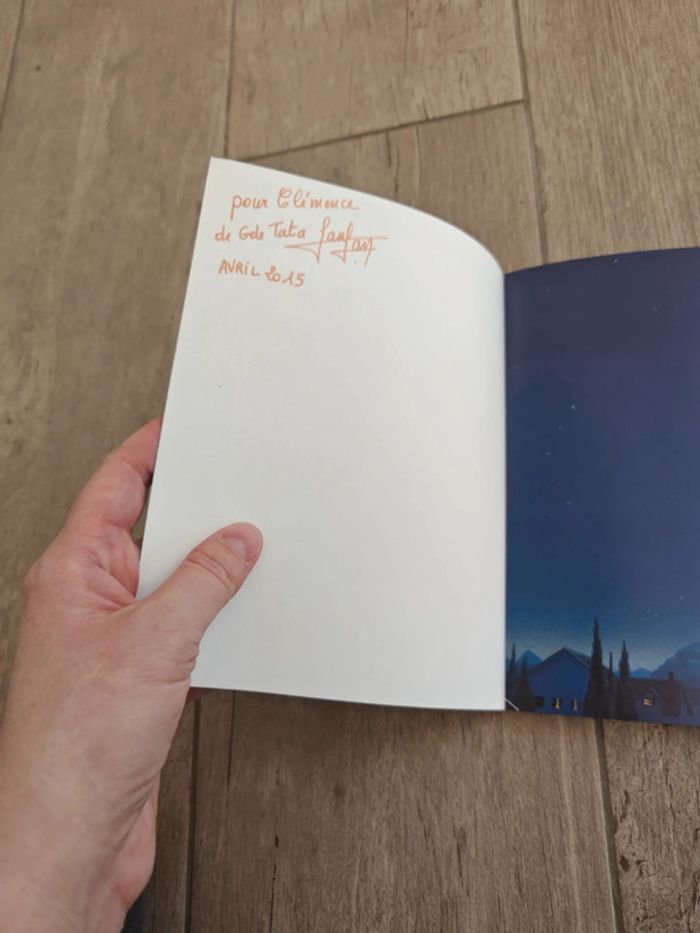 pour Clémence
de Gde Tata Fanfan
AVRIL 2015